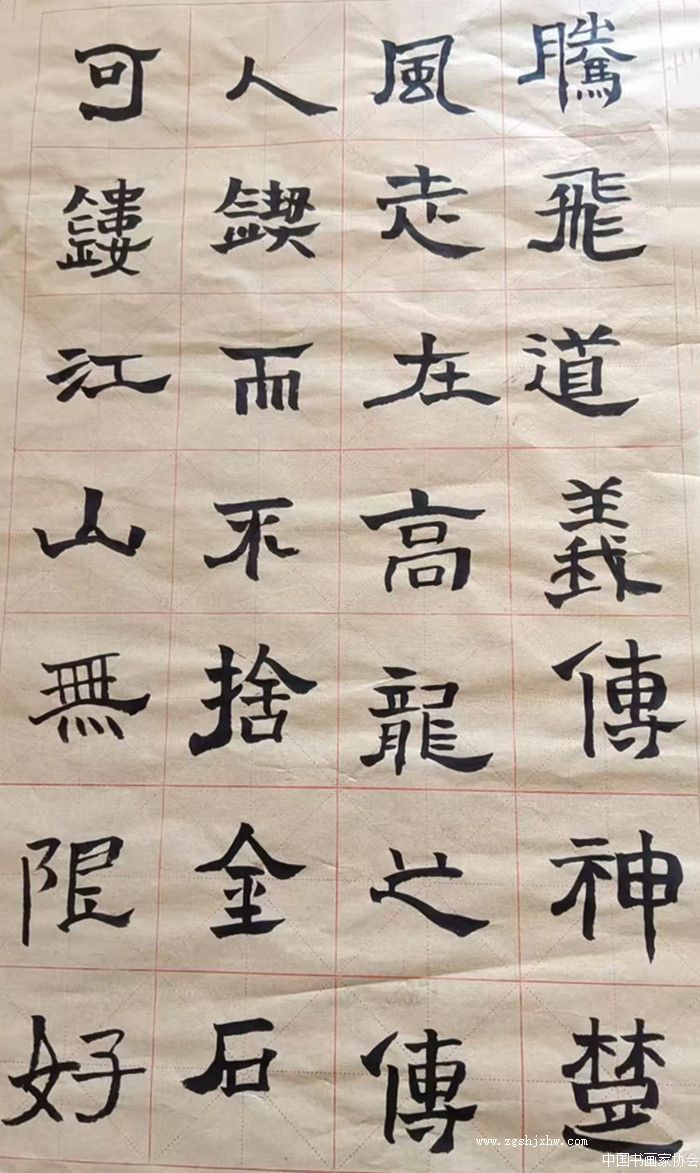 騰飛道義傳神楚
風走在高龍之傳
人鍥而不捨金石
可鏤江山無限好
www.zgshjxhw.com
中国书画家协会